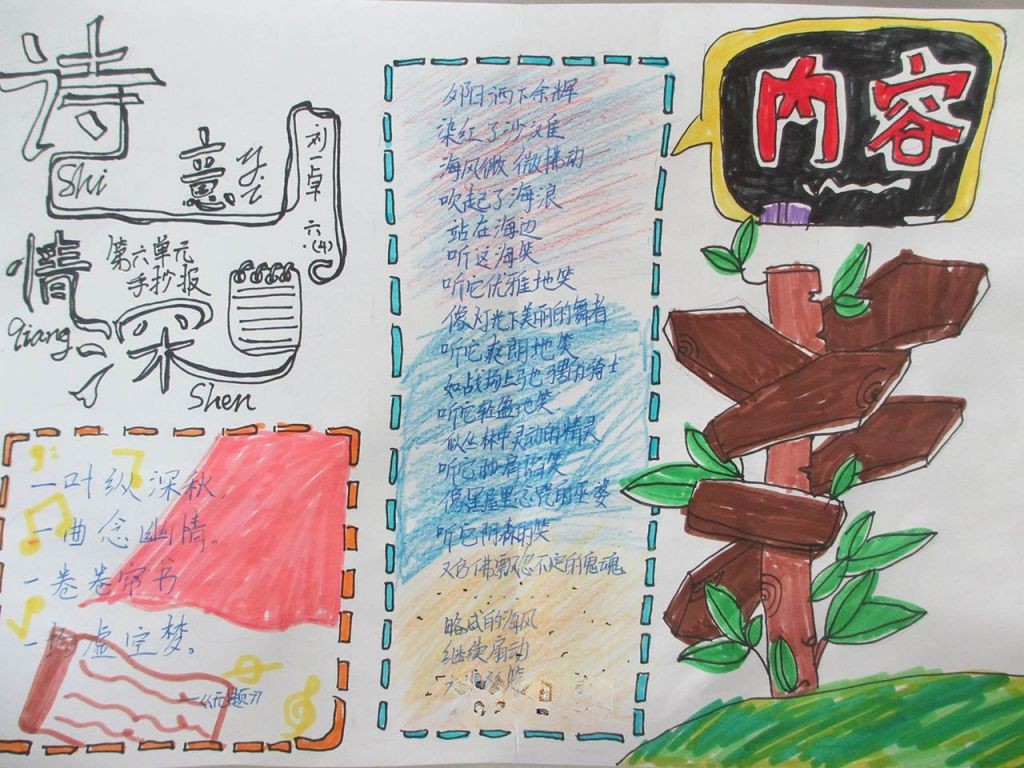 诗
Shi
意
刘一卓
六.(4)
情
qiang
第六单元
手抄报
深
Shen
内容
夕阳洒下余辉
染红了沙滩
海风微微拂动
吹起了海浪
站在海边
听这海笑
听它优雅地笑
像灯光下美丽的舞者
听它爽朗地笑
如战场上弓也骑士
听它轻盈地笑
似丛林中灵动的精灵
听它
像黑屋里念咒的巫婆
听它阴森的笑
又仿佛飘忽不定的鬼魂
......
略咸的海风
继续扇动
一叶纵深秋,
一曲念幽情。
一卷卷帘书
一 虚空梦。
—《无题》